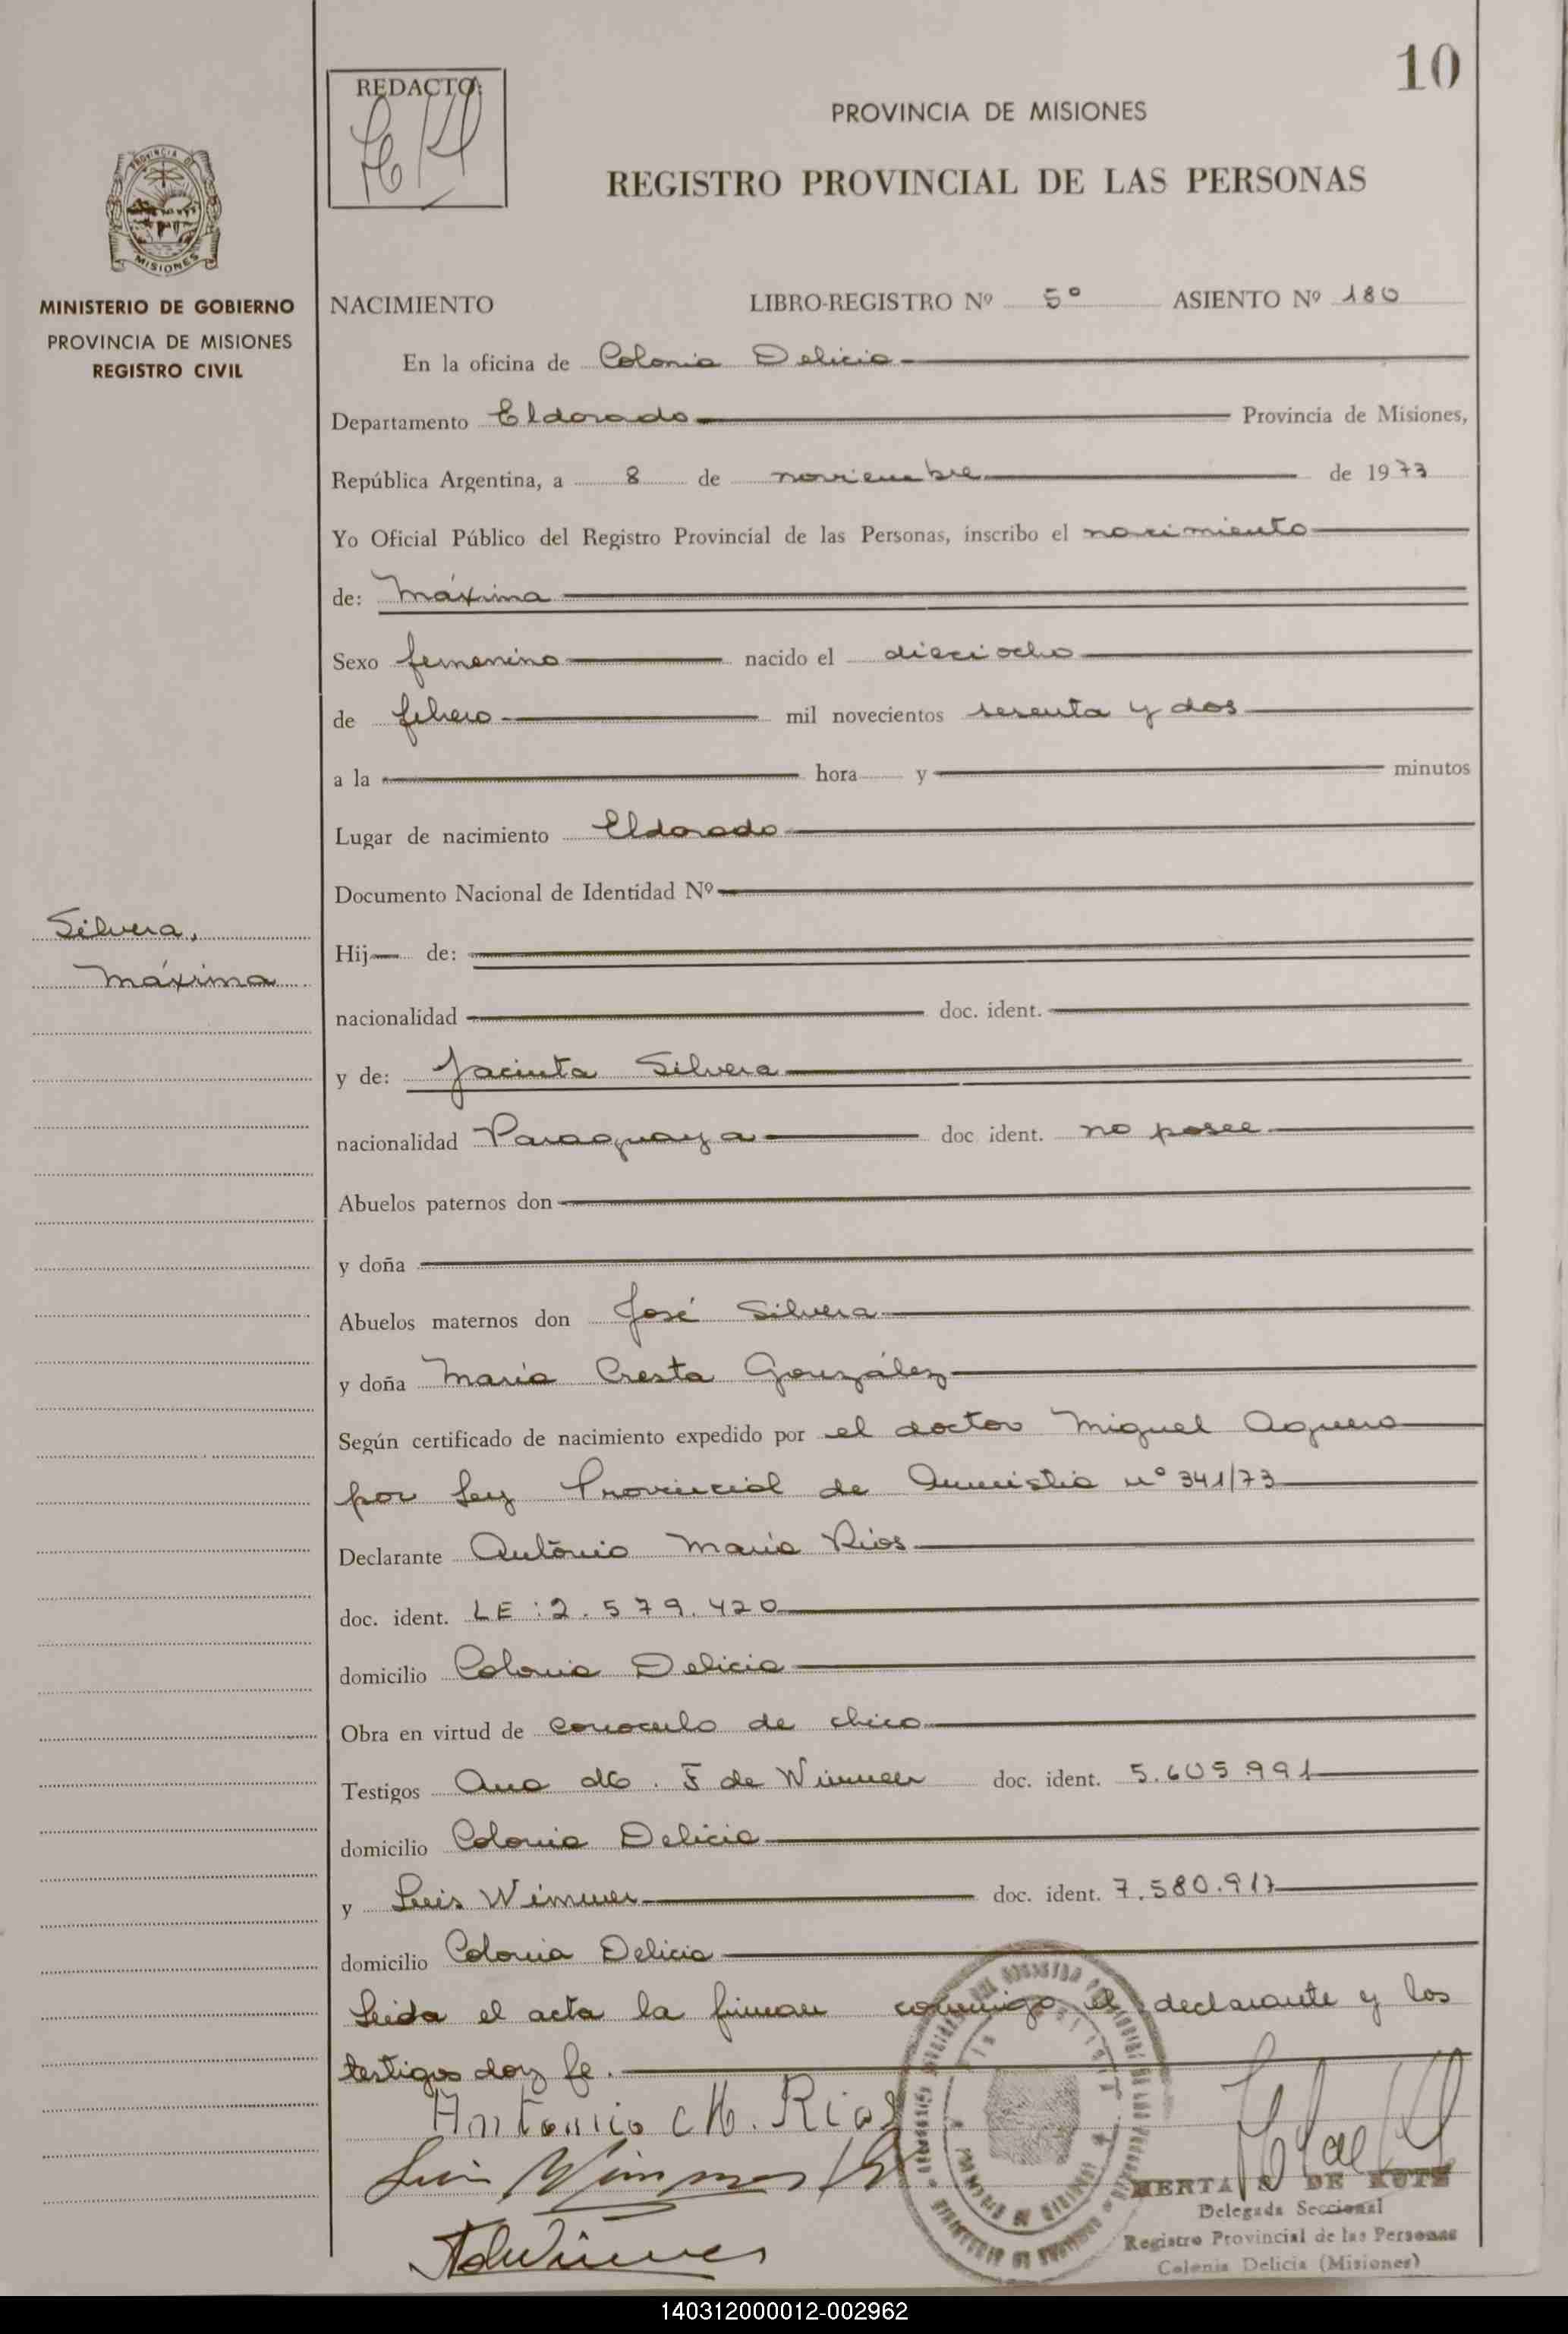 10
REDACTO:
PROVINCIA DE MISIONES
REGISTRO PROVINCIAL DE LAS PERSONAS
PROVINCIA DE
MISIONES
MINISTERIO DE GOBIERNO
PROVINCIA DE MISIONES
REGISTRO CIVIL
NACIMIENTO LIBRO-REGISTRO Nº 5º ASIENTO Nº 180
En la oficina de Colonia Delicia
Departamento Eldorado Provincia de Misiones,
República Argentina, a 8 de noviembre de 1973
Yo Oficial Público del Registro Provincial de las Personas, inscribo el nacimiento
de: Máxima
Sexo femenino nacido el dieciocho
de febrero mil novecientos sesenta y dos
a la hora y minutos
Lugar de nacimiento Eldorado
Documento Nacional de Identidad Nº
Silvera,
Máxima
Hij de:
nacionalidad doc. ident.
y de: Jacinta Silvera
nacionalidad Paraguaya doc ident. no posee
Abuelos paternos don
y doña
Abuelos maternos don José Silvera
y doña María Cresta González
Según certificado de nacimiento expedido por el doctor Miguel Aguero
por Ley Provincial de Amnistia nº 341/73
Declarante António María Rios
doc. ident. LE: 2.579.420
domicilio Colonia Delicia
Obra en virtud de conocerlo de chico
Testigos Ana M. F de Wimmer doc. ident. 5.605.991
domicilio Colonia Delicia
y Luis Wimmer doc. ident. 7.580.917
domicilio Colonia Delicia
Leida el acta la firman conmigo el declarante y los
testigos doy fe.
Antonio M. Rios
Luis Wimmer
HERTA S DE KUTZ
Delegada Seccional
Registro Provincial de las Personas
Colonia Delicia (Misiones)
140312000012-002962